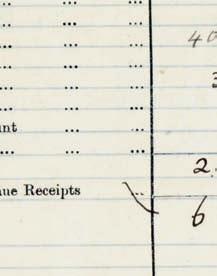 ... ... ...
... ... ...
... ... ... 40
... ... ...
... ... ...
... ... ...
nt ... ...
... ... ...
2
ue Receipts ...
6